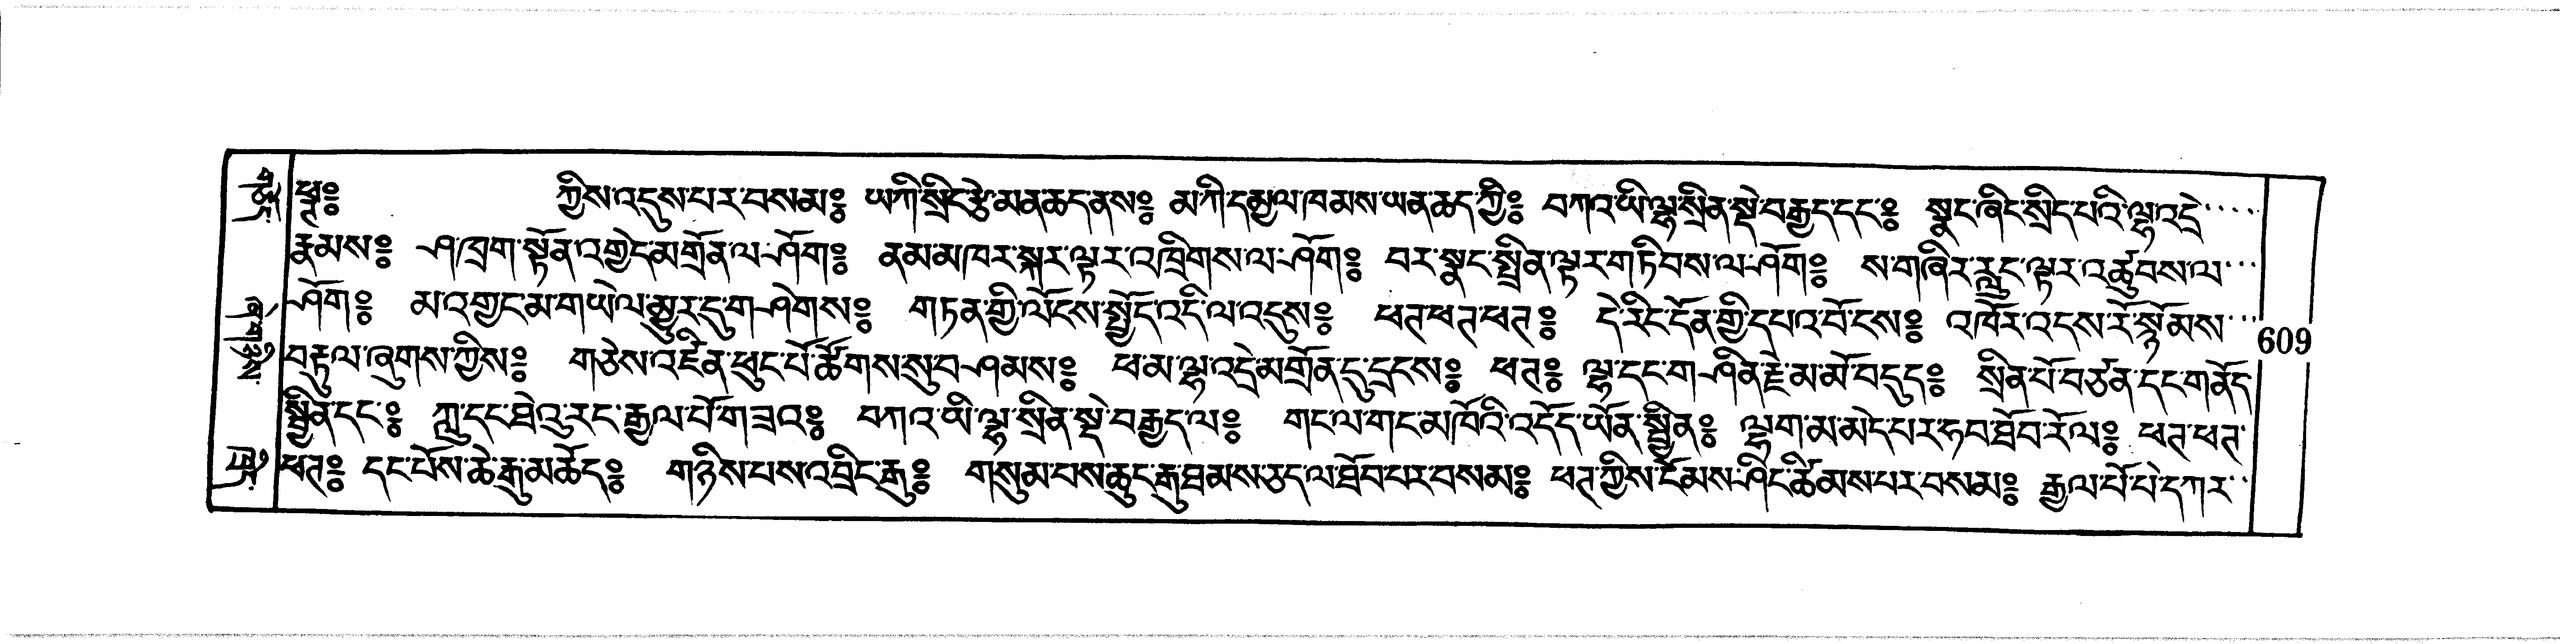 ཕཊ༔ ཀྱིས་འདུས་པར་བསམ༔ ཡ་ཀི་སྲིད་རྩེ་མན་ཆད་ནས༔ མ་ཀི་དམྱལ་ཁམས་ཡན་ཆད་ཀྱི༔ བཀའ་ཡི་ལྷ་སྲིན་སྡེ་བརྒྱད་དང་༔ སྣང་ཞིང་སྲིད་པའི་ལྷ་འདྲེ་····
རྣམས༔ ཤ་ཁྲག་སྟོན་འགྱེད་མགྲོན་ལ་ཤོག༔ ནམ་མཁར་སྐར་ལྟར་འཁྲིགས་ལ་ཤོག༔ བར་སྣང་སྤྲིན་ལྟར་གཏིབས་ལ་ཤོག༔ ས་གཞིར་རླུང་ལྟར་འཚུབས་ལ་···
ཤོག༔ མ་འགྱང་མ་གཡེལ་མྱུར་དུ་གཤེགས༔ གཏན་གྱི་ལོངས་སྤྱོད་འདི་ལ་འདུས༔ ཕཊ་ཕཊ་ཕཊ༔ དེ་རིང་དོན་གྱི་དཔའ་བོ་ངས༔ འཁོར་འདས་རོ་སྙོམས་···
བརྟུལ་ཞུགས་ཀྱིས༔ གཅེས་འཛིན་ཕུང་པོ་ཚོགས་སུ་བཤམས༔ ཕ་མ་ལྷ་འདྲེ་མགྲོན་དུ་དྲངས༔ ཕཊ༔ ལྷ་དང་གཤིན་རྗེ་མ་མོ་བདུད༔ སྲིན་པོ་བཙན་དང་གནོད་
སྦྱིན་དང་༔ ཀླུ་དང་ཐེའུ་རང་རྒྱལ་པོ་གཟའ༔ བཀའ་ཡི་ལྷ་སྲིན་སྡེ་བརྒྱད་ལ༔ གང་ལ་གང་མཁོའི་འདོད་ཡོན་སྦྱིན༔ ལྷག་མ་མེད་པར་ཧབ་ཐོབ་རོལ༔ ཕཊ་ཕཊ་
ཕཊ༔ དང་པོས་ཆེ་རྒུ་མཆོད༔ གཉིས་པས་འབྲིང་རྒུ༔ གསུམ་པས་ཆུང་རྒུ་ཐམས་ཅད་ལ་ཐོབ་པར་བསམ༔ ཕཊ་ཀྱིས་ངོམས་ཤིང་ཚིམས་པར་བསམ༔ རྒྱལ་པོ་པེ་དཀར་··
609